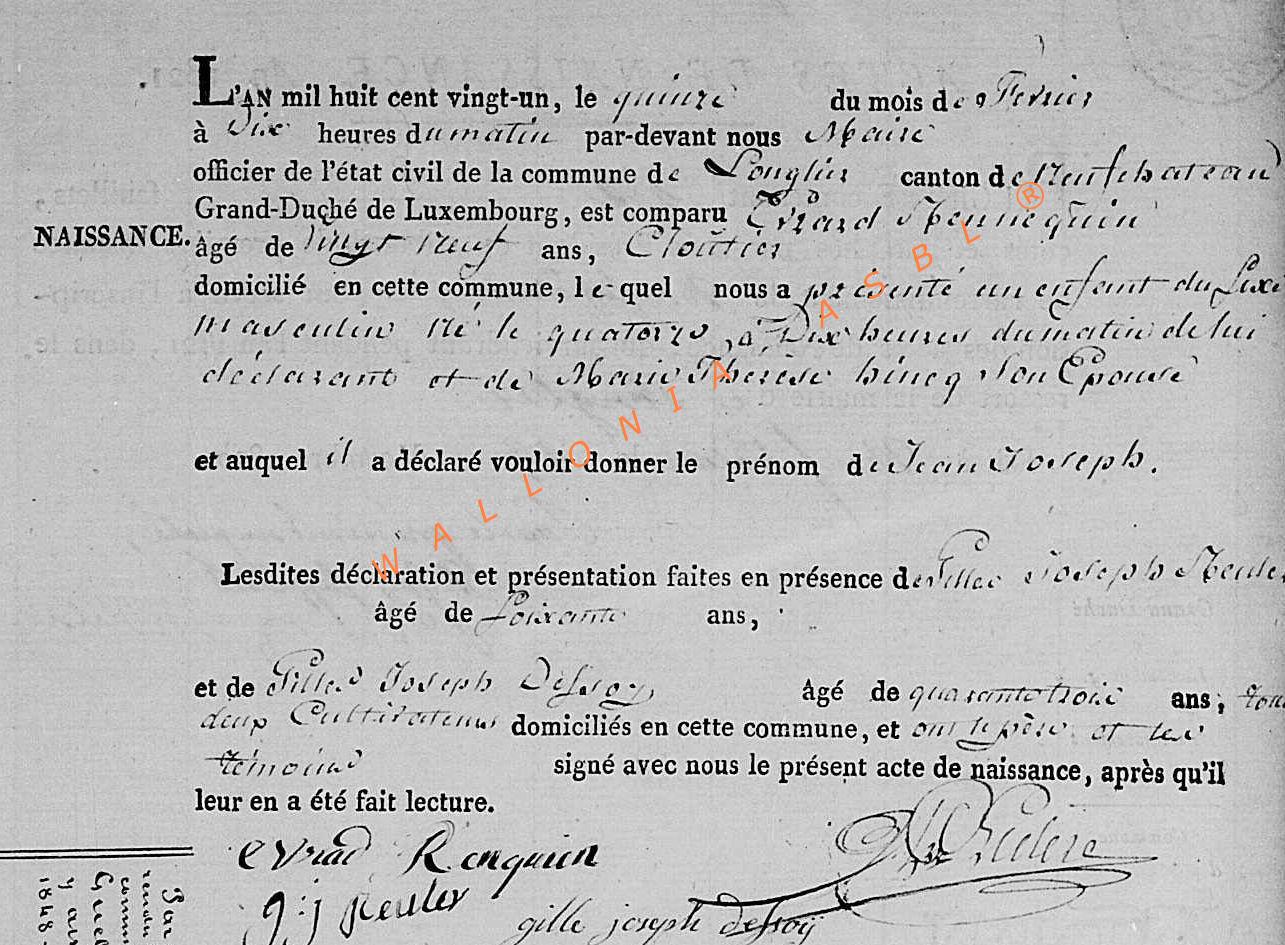 L'AN mil huit cent vingt-un, le quinze du mois de Fevrier
à Dix heures du matin par-devant nous Maire
officier de l'état civil de la commune de Longlier canton de Neufchateau
Grand-Duché de Luxembourg, est comparu Evrard Rennequin
NAISSANCE.
âgé de vingt neuf ans, Cloutier
domicilié en cette commune, le quel nous a présenté un enfant du Sexe
masculin né le quatorze, à Dix heures du matin de lui
déclarant et de Marie Thérèse Son Epouse
et auquel il a déclaré vouloir donner le prénom de Jean Joseph.
Lesdites déclaration et présentation faites en présence de Gilles Joseph Reuler
âgé de Soixante ans,
et de Gilles Joseph Dessoy, âgé de quarante trois ans, tous
deux Cultivateurs domiciliés en cette commune, et ont le père et les
témoins signé avec nous le présent acte de naissance, après qu'il
leur en a été fait lecture.
evrad Renquien
g: j Reuler gille joseph dessoÿ
Par
rendu
comm
1848
WALLONIA ASBL ®